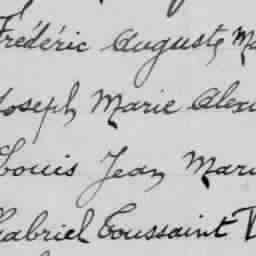 Frédéric Auguste Ma
Joseph Marie Alex
Louis Jean Mari
Gabriel Toussaint